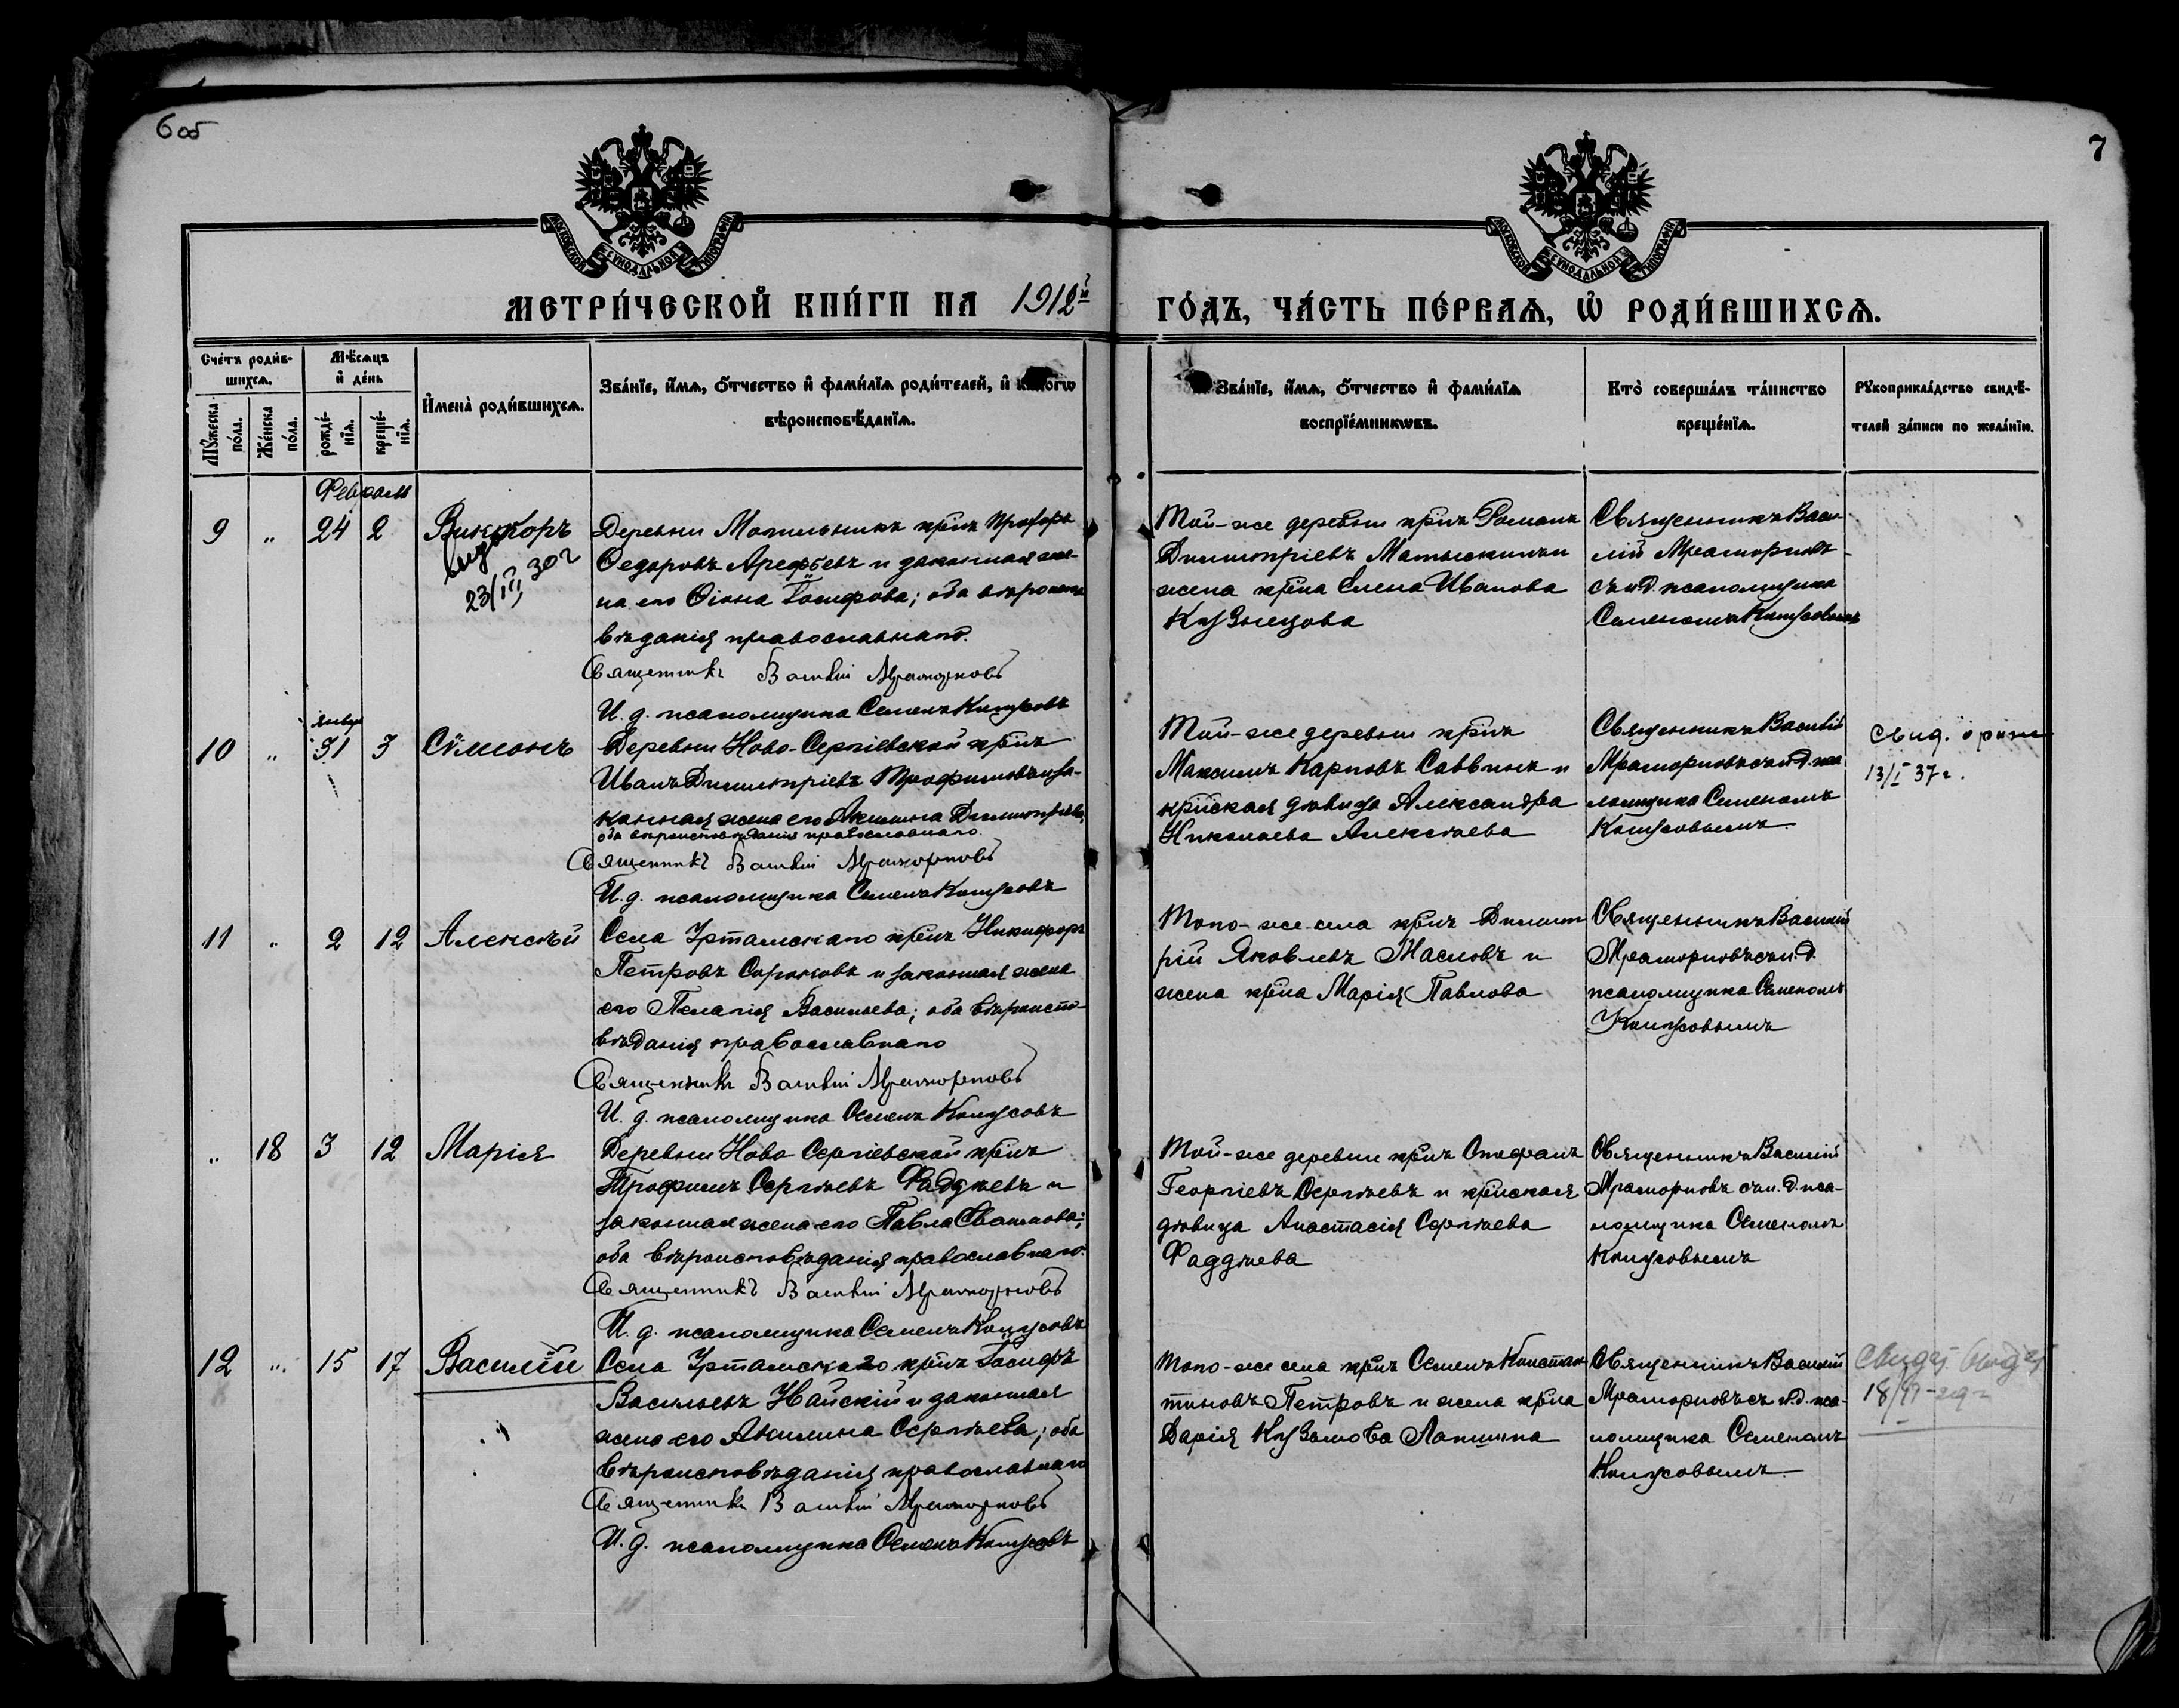 6 об
7
МОСКОВСКОЙ СѴНОДАЛЬНОЙ ТИПОГРАФІИ
МОСКОВСКОЙ СѴНОДАЛЬНОЙ ТИПОГРАФІИ
МЕТРИ́ЧЕСКОЙ КНИ́ГИ НА 1912й ГО́ДЪ, ЧА́СТЬ ПЕ́РВАѦ, Ѡ҆ РОДИ́ВШИХСѦ.
Сче́тъ роди́в-
шихсѧ.
Мꙋ́жеска по́ла.
Же́нска по́ла.
Мѣ́сѧцъ
и҆ де́нь
рожде́-
нїѧ.
креще́-
нїѧ.
И҆мена̀ роди́вшихсѧ.
Зва́нїе, и҆́мѧ, ѻ҆́тчество и҆ фами́лїѧ роди́телей, и҆ како́гѡ
вѣроисповѣ́данїѧ.
Зва́нїе, и҆́мѧ, ѻ҆́тчество и҆ фами́лїѧ
воспрїе́мникѡвъ.
Кто̀ соверша́лъ та́инство
креще́нїѧ.
Рꙋкоприкла́дство свидѣ́-
телей за́писи по жела́нїю.
Февраля
9 „ 24 2 Викторъ
23/III 30 г
Деревни Могильникъ кр̃нъ Прохоръ
Ѳедоровъ Арефьевъ и законная же-
на его Ѳіона Іосифова; оба вѣроиспо
вѣданія православнаго.
Священникъ Василій Мраморновъ
И. д. псаломщика Семенъ Кошусовъ
Той-же деревни кр̃нъ Романъ
Димитріевъ Матыскинъ и
жена кр̃на Елена Иванова
Кузнецова
Священникъ Васи-
лій Мраморновъ
съ и.д. псаломщика
Семеномъ Кошусовымъ
Январ
10 „ 31 3 Сѵмеонъ
Деревни Ново-Сергіевской кр̃нъ
Иванъ Димитріевъ Трофимовъ и за-
конная жена его Акилина Димитріева,
оба вѣроисповѣданія православнаго.
Священникъ Василій Мраморновъ
И. д. псаломщика Семенъ Кошусовъ
Той-же деревни кр̃нъ
Максимъ Карповъ Саввинъ и
кр̃нская дѣвица Александра
Николаева Алексѣева
Священникъ Василій
Мраморновъ съ и.д. пса
ломщика Семеномъ
Кошусовымъ.
Свид.
13/I 37 г.
11 „ 2 12 Алексѣй
Села Уртамскаго кр̃нъ Никифоръ
Петровъ Сороковъ и законная жена
его Пелагія Васильева; оба вѣроиспо-
вѣданія православнаго
Священникъ Василій Мраморновъ
И. д. псаломщика Семенъ Кошусовъ
Того-же села кр̃нъ Димит
рій Яковлевъ Масловъ и
жена кр̃на Марія Павлова
Священникъ Василій
Мраморновъ съ и.д.
псаломщика Семеномъ
Кошусовымъ
„ 18 3 12 Марія
Деревни Ново Сергіевской кр̃нъ
Трофимъ Сергѣевъ Фаддѣевъ и
законная жена его Павла
оба вѣроисповѣданія православнаго.
Священникъ Василій Мраморновъ
И. д. псаломщика Семенъ Кошусовъ
Той-же деревни кр̃нъ Стефанъ
Георгіевъ Сергѣевъ и кр̃нская
дѣвица Анастасія Сергѣева
Фаддѣева
Священникъ Василій
Мраморновъ съ и.д. пса-
ломщика Семеномъ
Кошусовымъ
12 „ 15 17 Василій
Села Уртамскаго кр̃нъ Іосифъ
Васильевъ Найскій и законная
жена его Акилина Сергѣева; оба
вѣроисповѣданія православнаго
Священникъ Василій Мраморновъ
И. д. псаломщика Семенъ Кошусовъ
Того-же села кр̃нъ Семенъ Констан
тиновъ Петровъ и жена кр̃на
Дарія Кузьмова Лапшина
Священникъ Василій
Мраморновъ съ и.д. пса-
ломщика Семеномъ
Кошусовымъ.